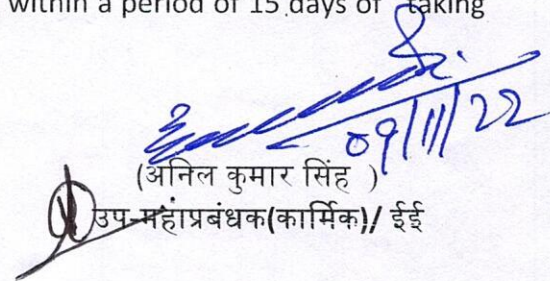 within a period of 15 days of taking
09/11/22
(अनिल कुमार सिंह )
उप-महाप्रबंधक(कार्मिक)/ ईई